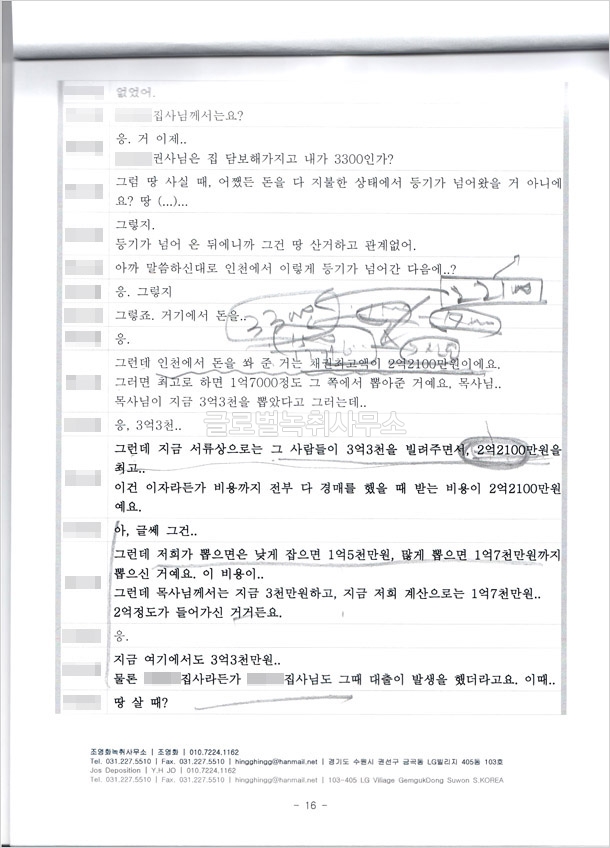 없었어.
집사님께서는요?
응. 거 이제..
권사님은 집 담보해가지고 내가 3300인가?
그럼 땅 사실 때, 어쨌든 돈을 다 지불한 상태에서 등기가 넘어왔을 거 아니에
요? 땅 (...)...
그렇지.
등기가 넘어 온 뒤에니까 그건 땅 산거하고 관계없어.
아까 말씀하신대로 인천에서 이렇게 등기가 넘어간 다음에..?
2 2100
응. 그렇지
그렇죠. 거기에서 돈을..
3300
응.
그런데 인천에서 돈을 쏴 준 거는 채권최고액이 2억2100만원이에요.
그러면 최고로 하면 1억7000정도 그 쪽에서 뽑아준 거예요. 목사님..
목사님이 지금 3억3천을 뽑았다고 그러는데..
응, 3억3천..
글로벌녹취사무소
그런데 지금 서류상으로는 그 사람들이 3억3천을 빌려주면서, 2억2100만원을
최고..
이건 이자라든가 비용까지 전부 다 경매를 했을 때 받는 비용이 2억2100만원
예요.
아, 글쎄 그건..
그런데 저희가 뽑으면은 낮게 잡으면 1억5천만원, 많게 뽑으면 1억7천만원까지
뽑으신 거예요. 이 비용이..
그런데 목사님께서는 지금 3천만원하고, 지금 저희 계산으로는 1억7천만원..
2억정도가 들어가신 거거든요.
응.
지금 여기에서도 3억3천만원..
물론 집사라든가 집사님도 그때 대출이 발생을 했더라고요. 이때..
땅 살 때?
조영화녹취사무소 | 조영화 | 010.7224.1162
Tel. 031.227.5510 | Fax. 031.227.5510 | hingghingg@hanmail.net | 경기도 수원시 권선구 금곡동 LG빌리지 405동 103호
Jos Deposition | Y.H JO | 010.7224.1162
Tel. 031.227.5510 | Fax. 031.227.5510 | hingghingg@hanmail.net | 103-405 LG Village GemgukDong Suwon S.KOREA
- 16 -